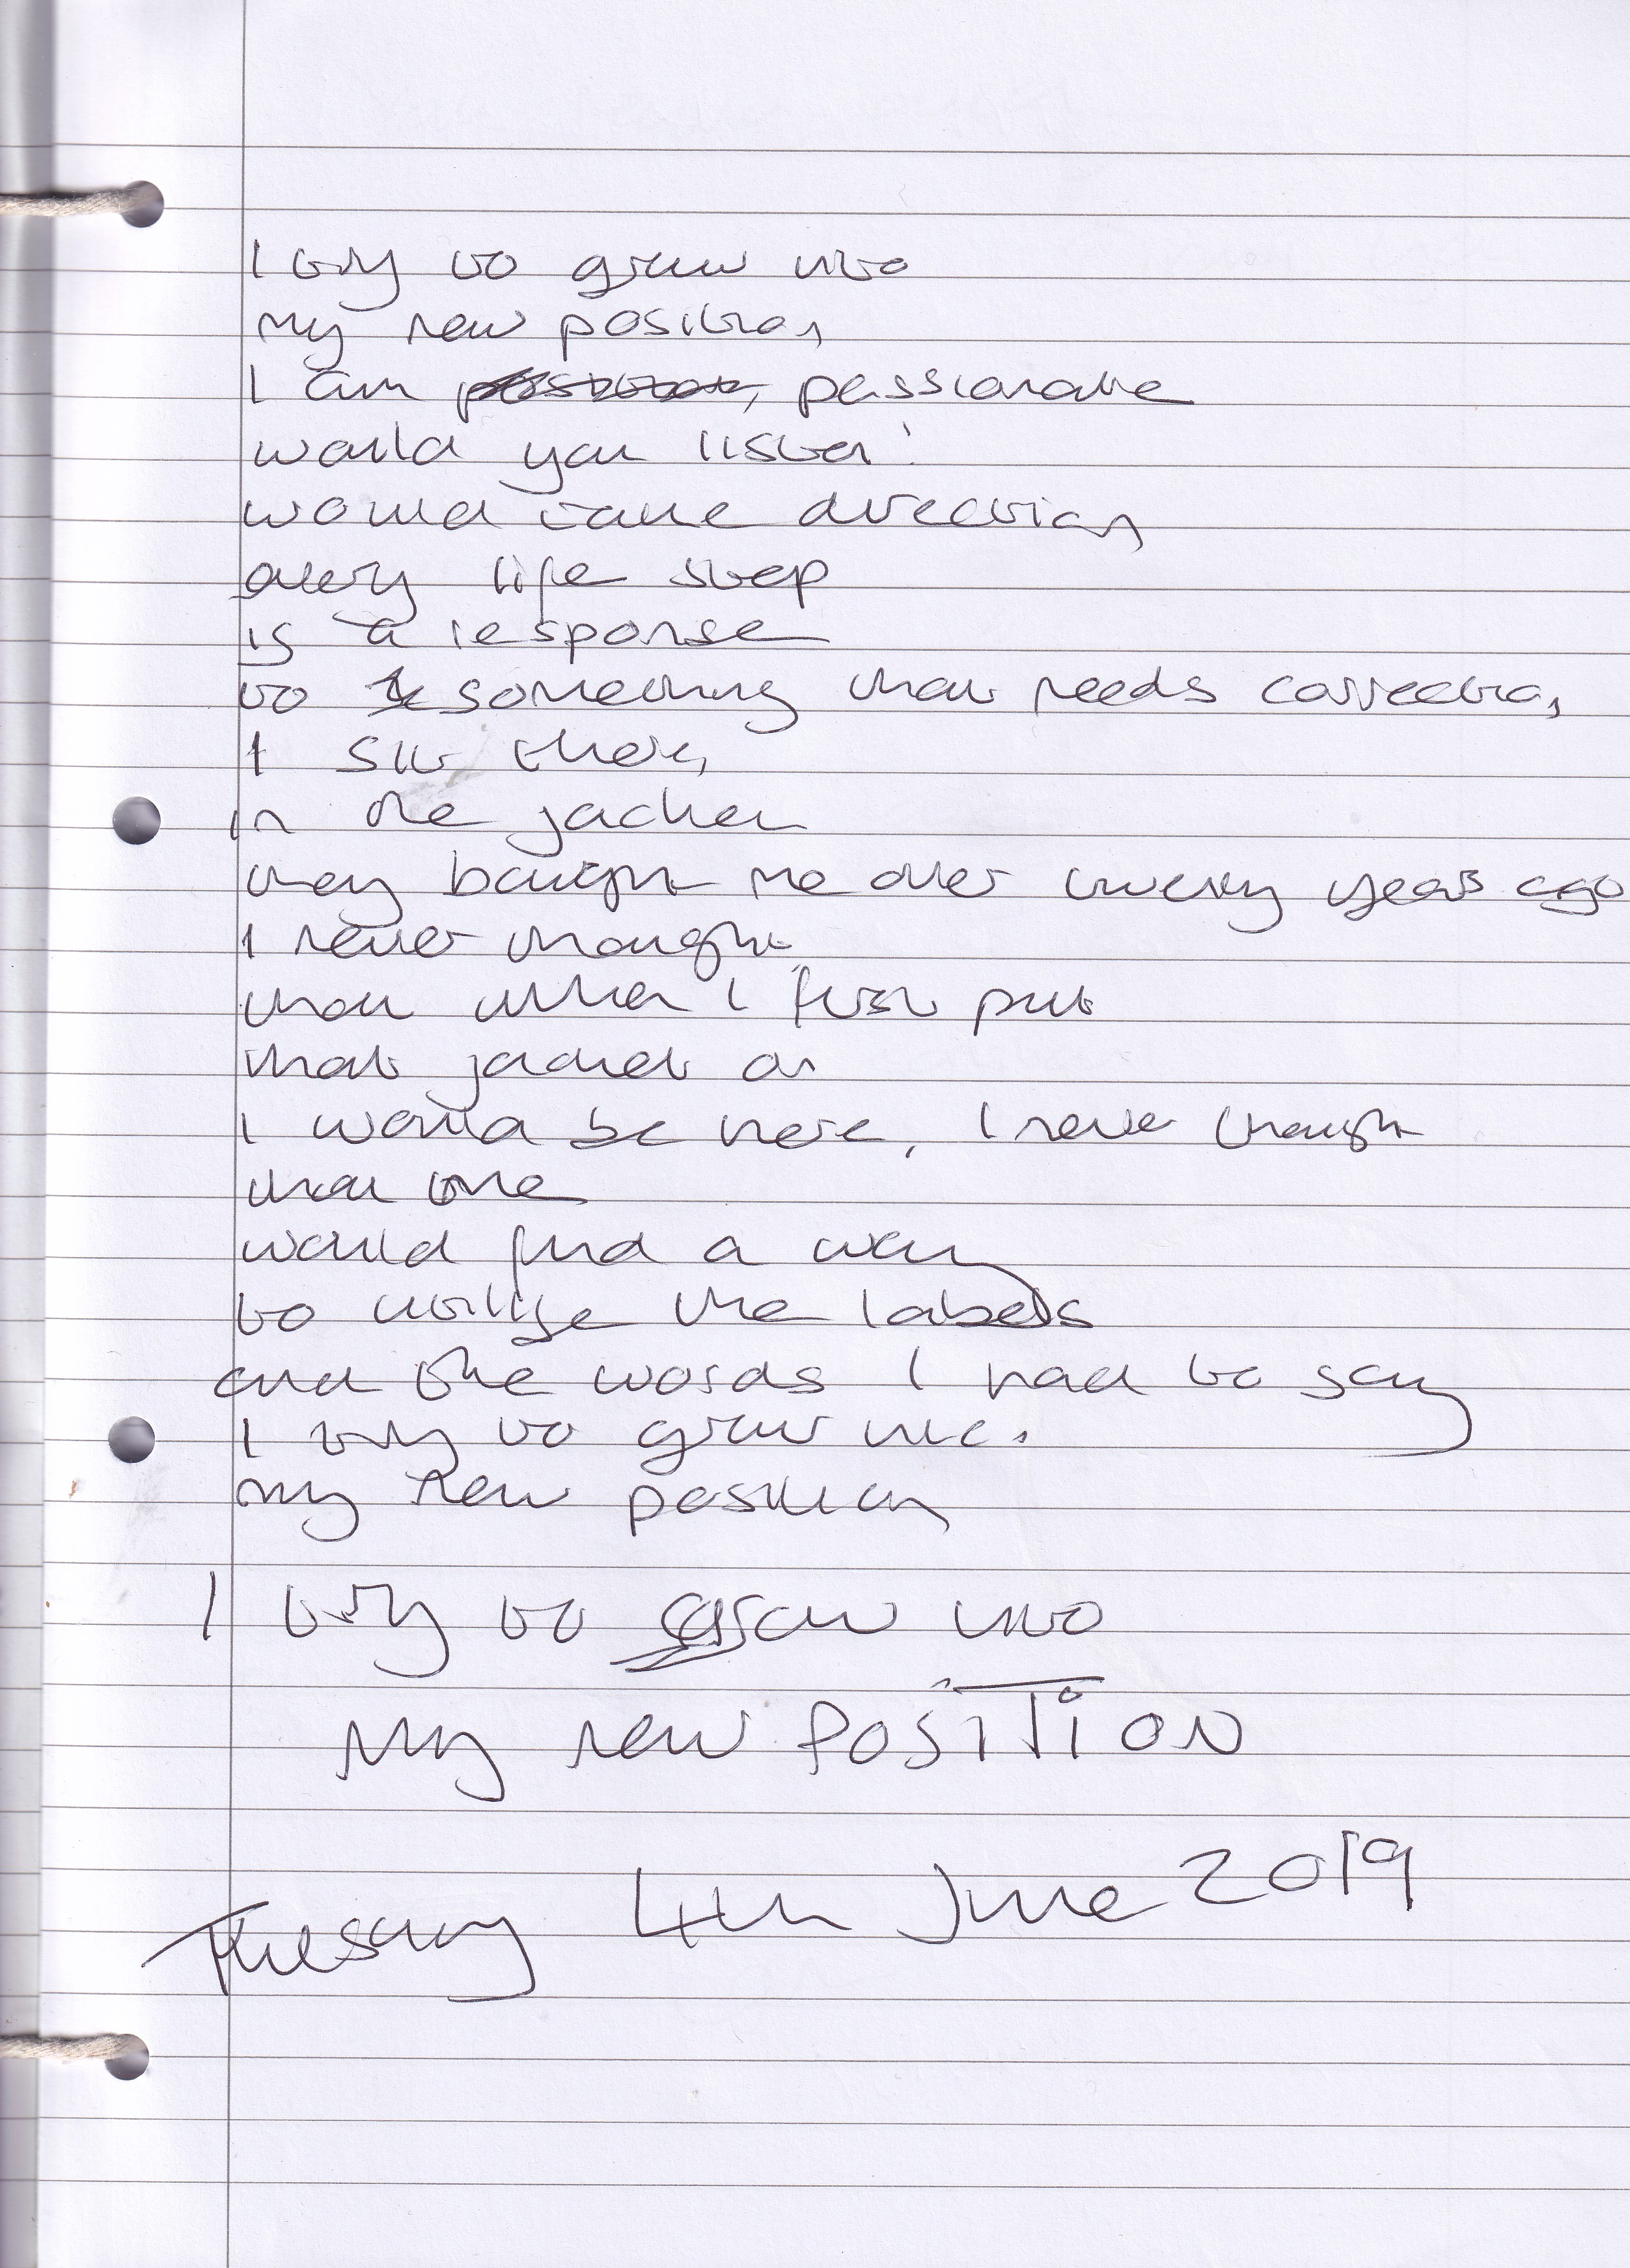 I try to grow into
my new position,
I am passionate
would you listen!
would take direction,
every life step
is a response
to something that needs correction,
I sit there,
in the jacket
they bought me over twenty years ago
I never thought
that when I first put
that jacket on
I would be here, I never thought
that one
would find a way
to utilize the labels
and the words I had to say
I try to grow into
my new position
I try to grow into
my new POSITION
Tuesday 4th June 2019